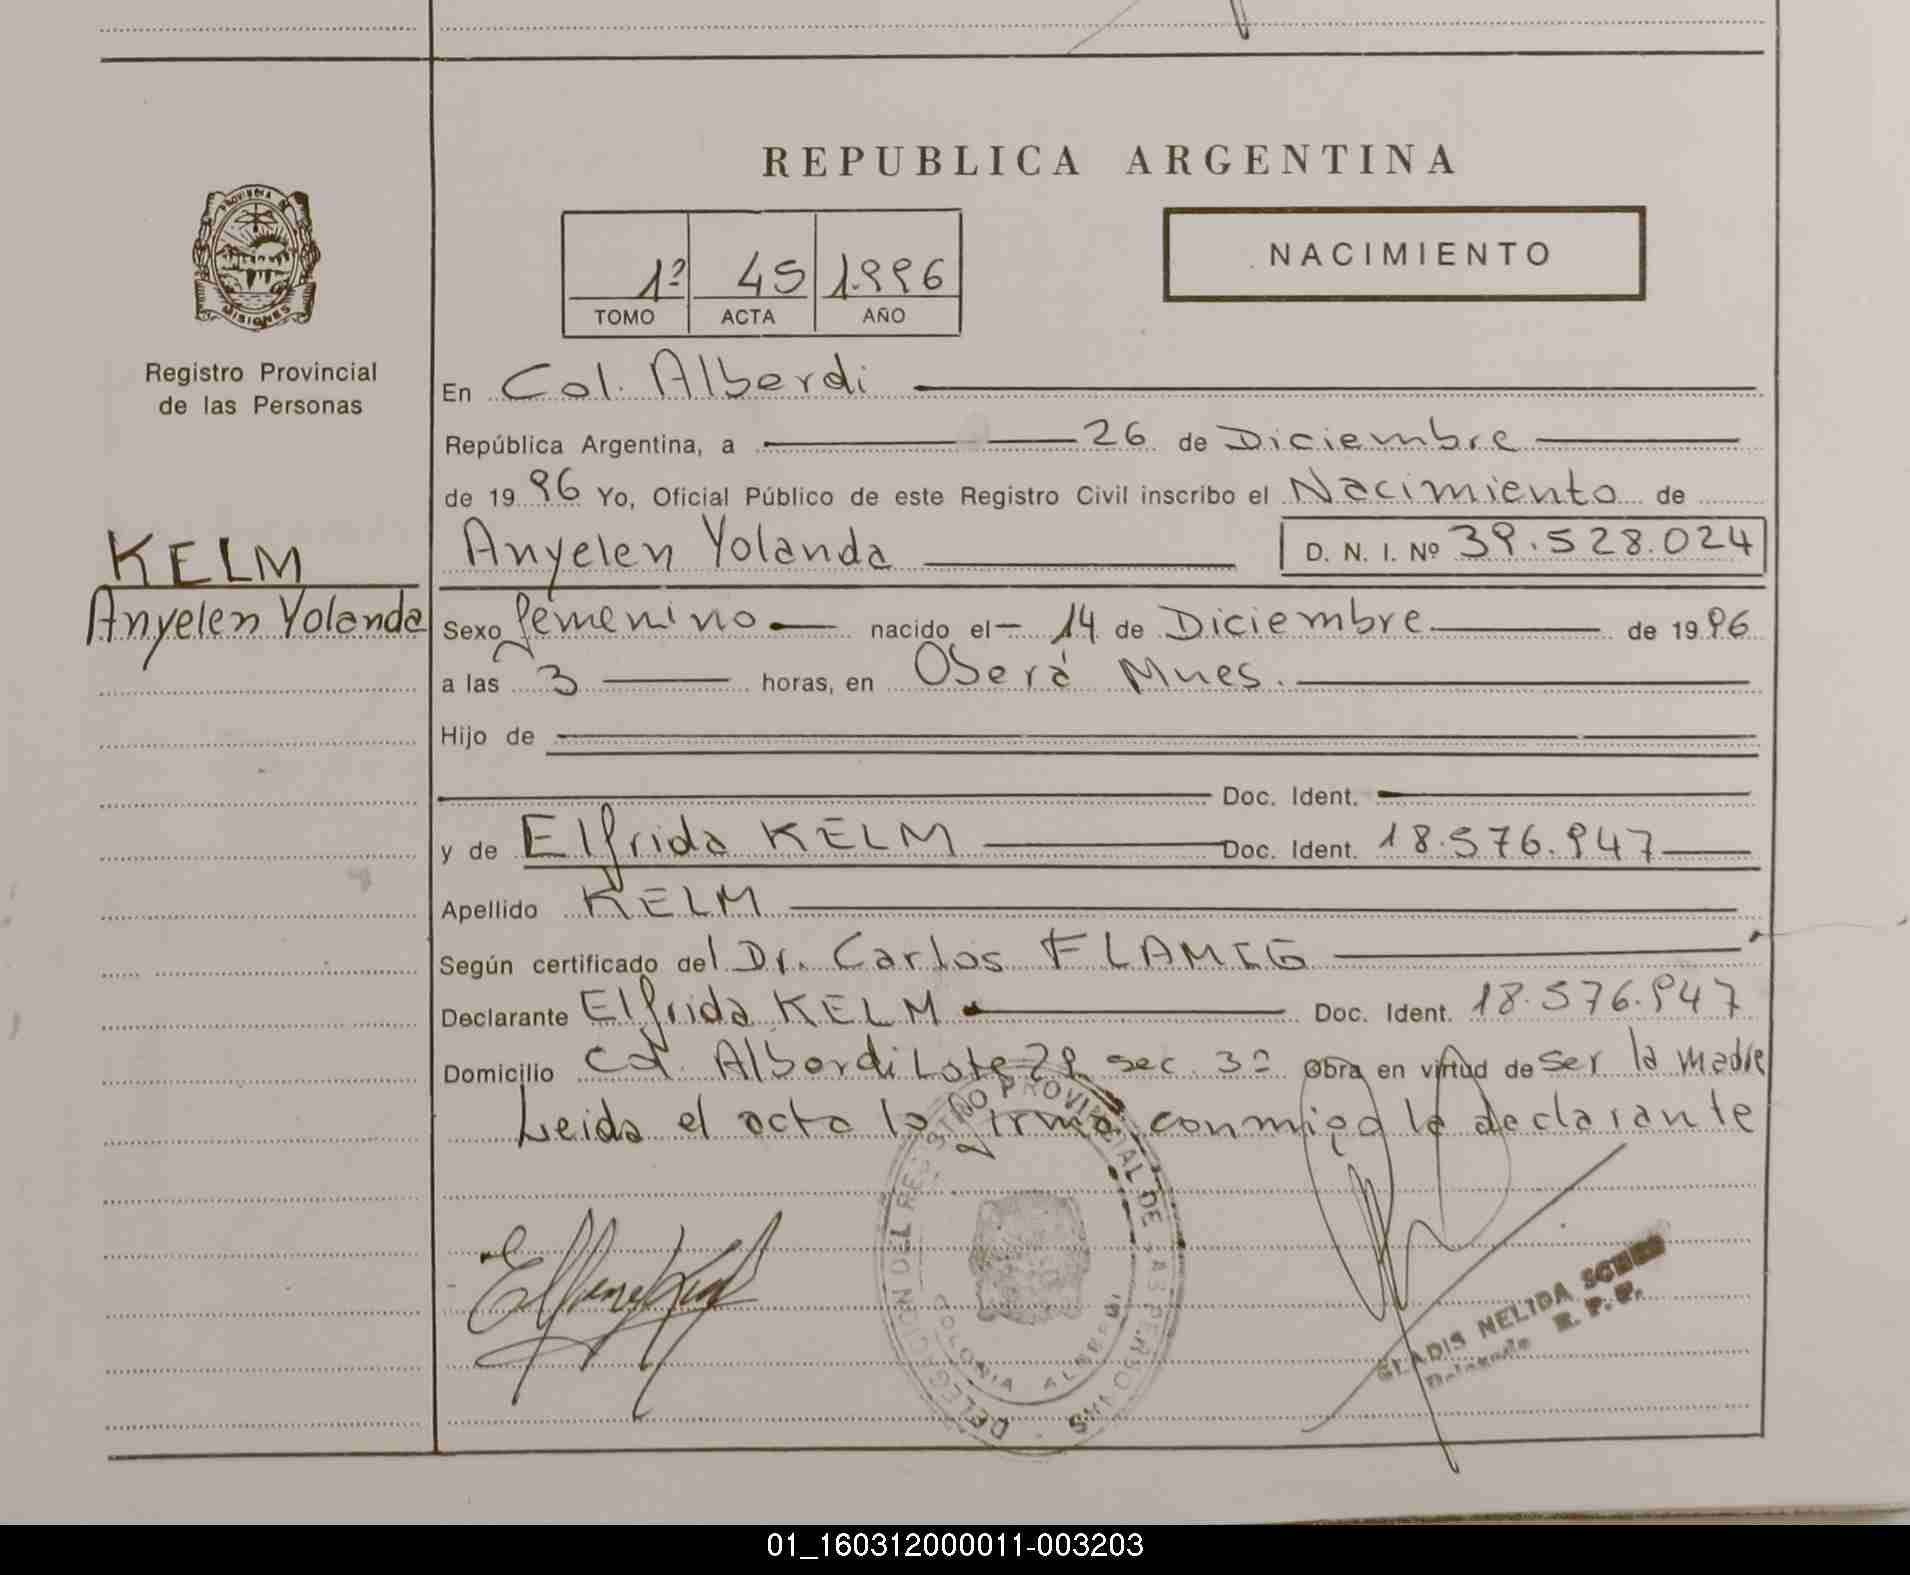 REPUBLICA ARGENTINA
PROVINCIA DE
MISIONES
Registro Provincial
de las Personas
NACIMIENTO
1º 45 1.996
TOMO ACTA AÑO
En Col. Alberdi
República Argentina, a 26 de Diciembre
de 19 96 Yo, Oficial Público de este Registro Civil inscribo el Nacimiento de
KELM
Anyelen Yolanda
Anyelen Yolanda D. N. I. Nº 39.528.024
Sexo femenino nacido el 14 de Diciembre de 19 96
a las 3 horas, en Oberá Mnes.
Hijo de
Doc. Ident.
y de Elfrida KELM Doc. Ident. 18.576.947
Apellido KELM
Según certificado del Dr. Carlos FLAMIG
Declarante Elfrida KELM Doc. Ident. 18.576.947
Domicilio Col. Alberdi Lote 29 sec 3º Obra en virtud de ser la madre
Leida el acta la firma conmigo la declarante
DELEGACION DEL REGISTRO PROVINCIAL DE LAS PERSONAS
COLONIA ALBERDI
GLADIS NELIDA
Delegada R. P. P.
01_160312000011-003203